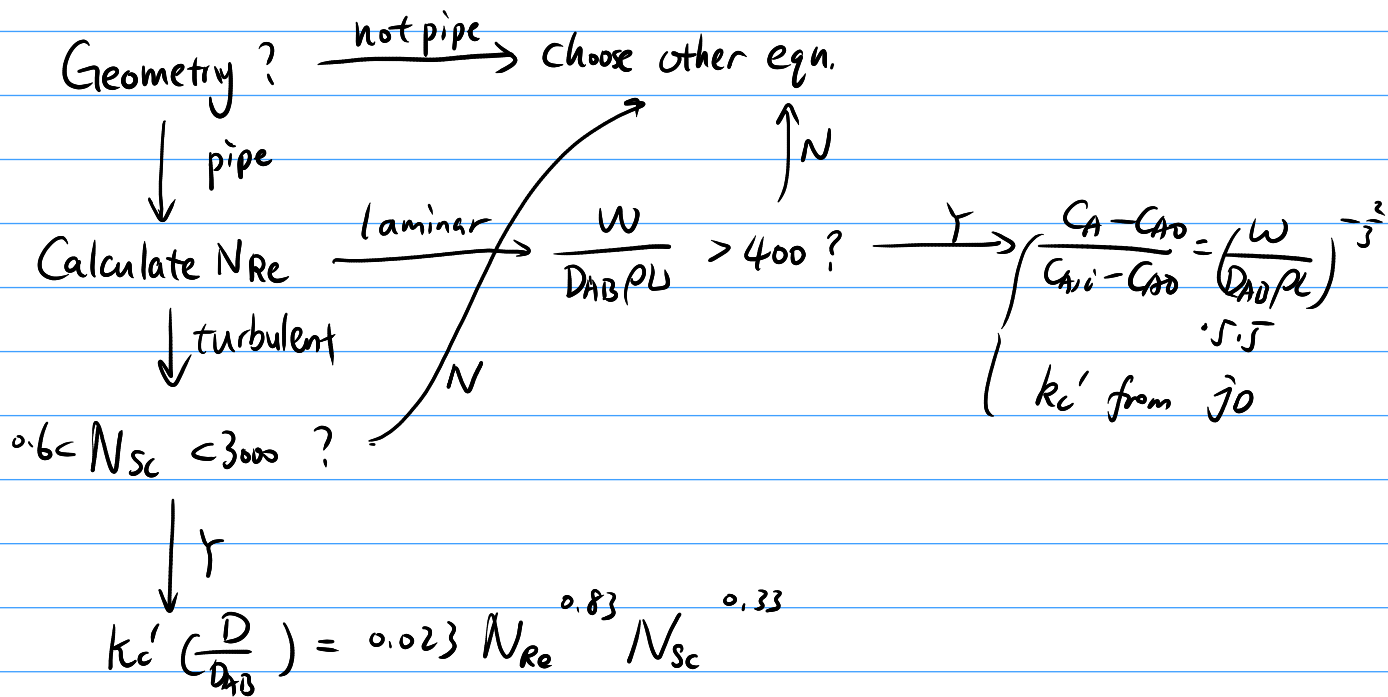 Geometry ? not pipe choose other eqn.
pipe
N
Calculate NRe laminar W/(DABρL) > 400 ? Y (CA - CA0)/(CA,i - CA0) = (W/(DABρL))^(-2/3)
·5.5
turbulent
N
kc' from jD
0.6< NSc <3000 ?
Y
kc' (D/DAB) = 0.023 NRe^0.83 NSc^0.33